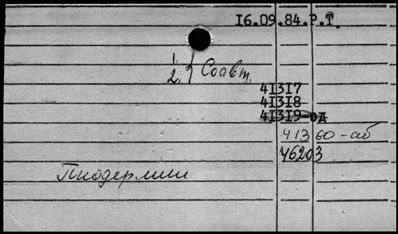 16.09.84.Р.Т.
1.
2. } Соавт.
41317
41318
41319-од
41360-аб
46203
Пиодермии